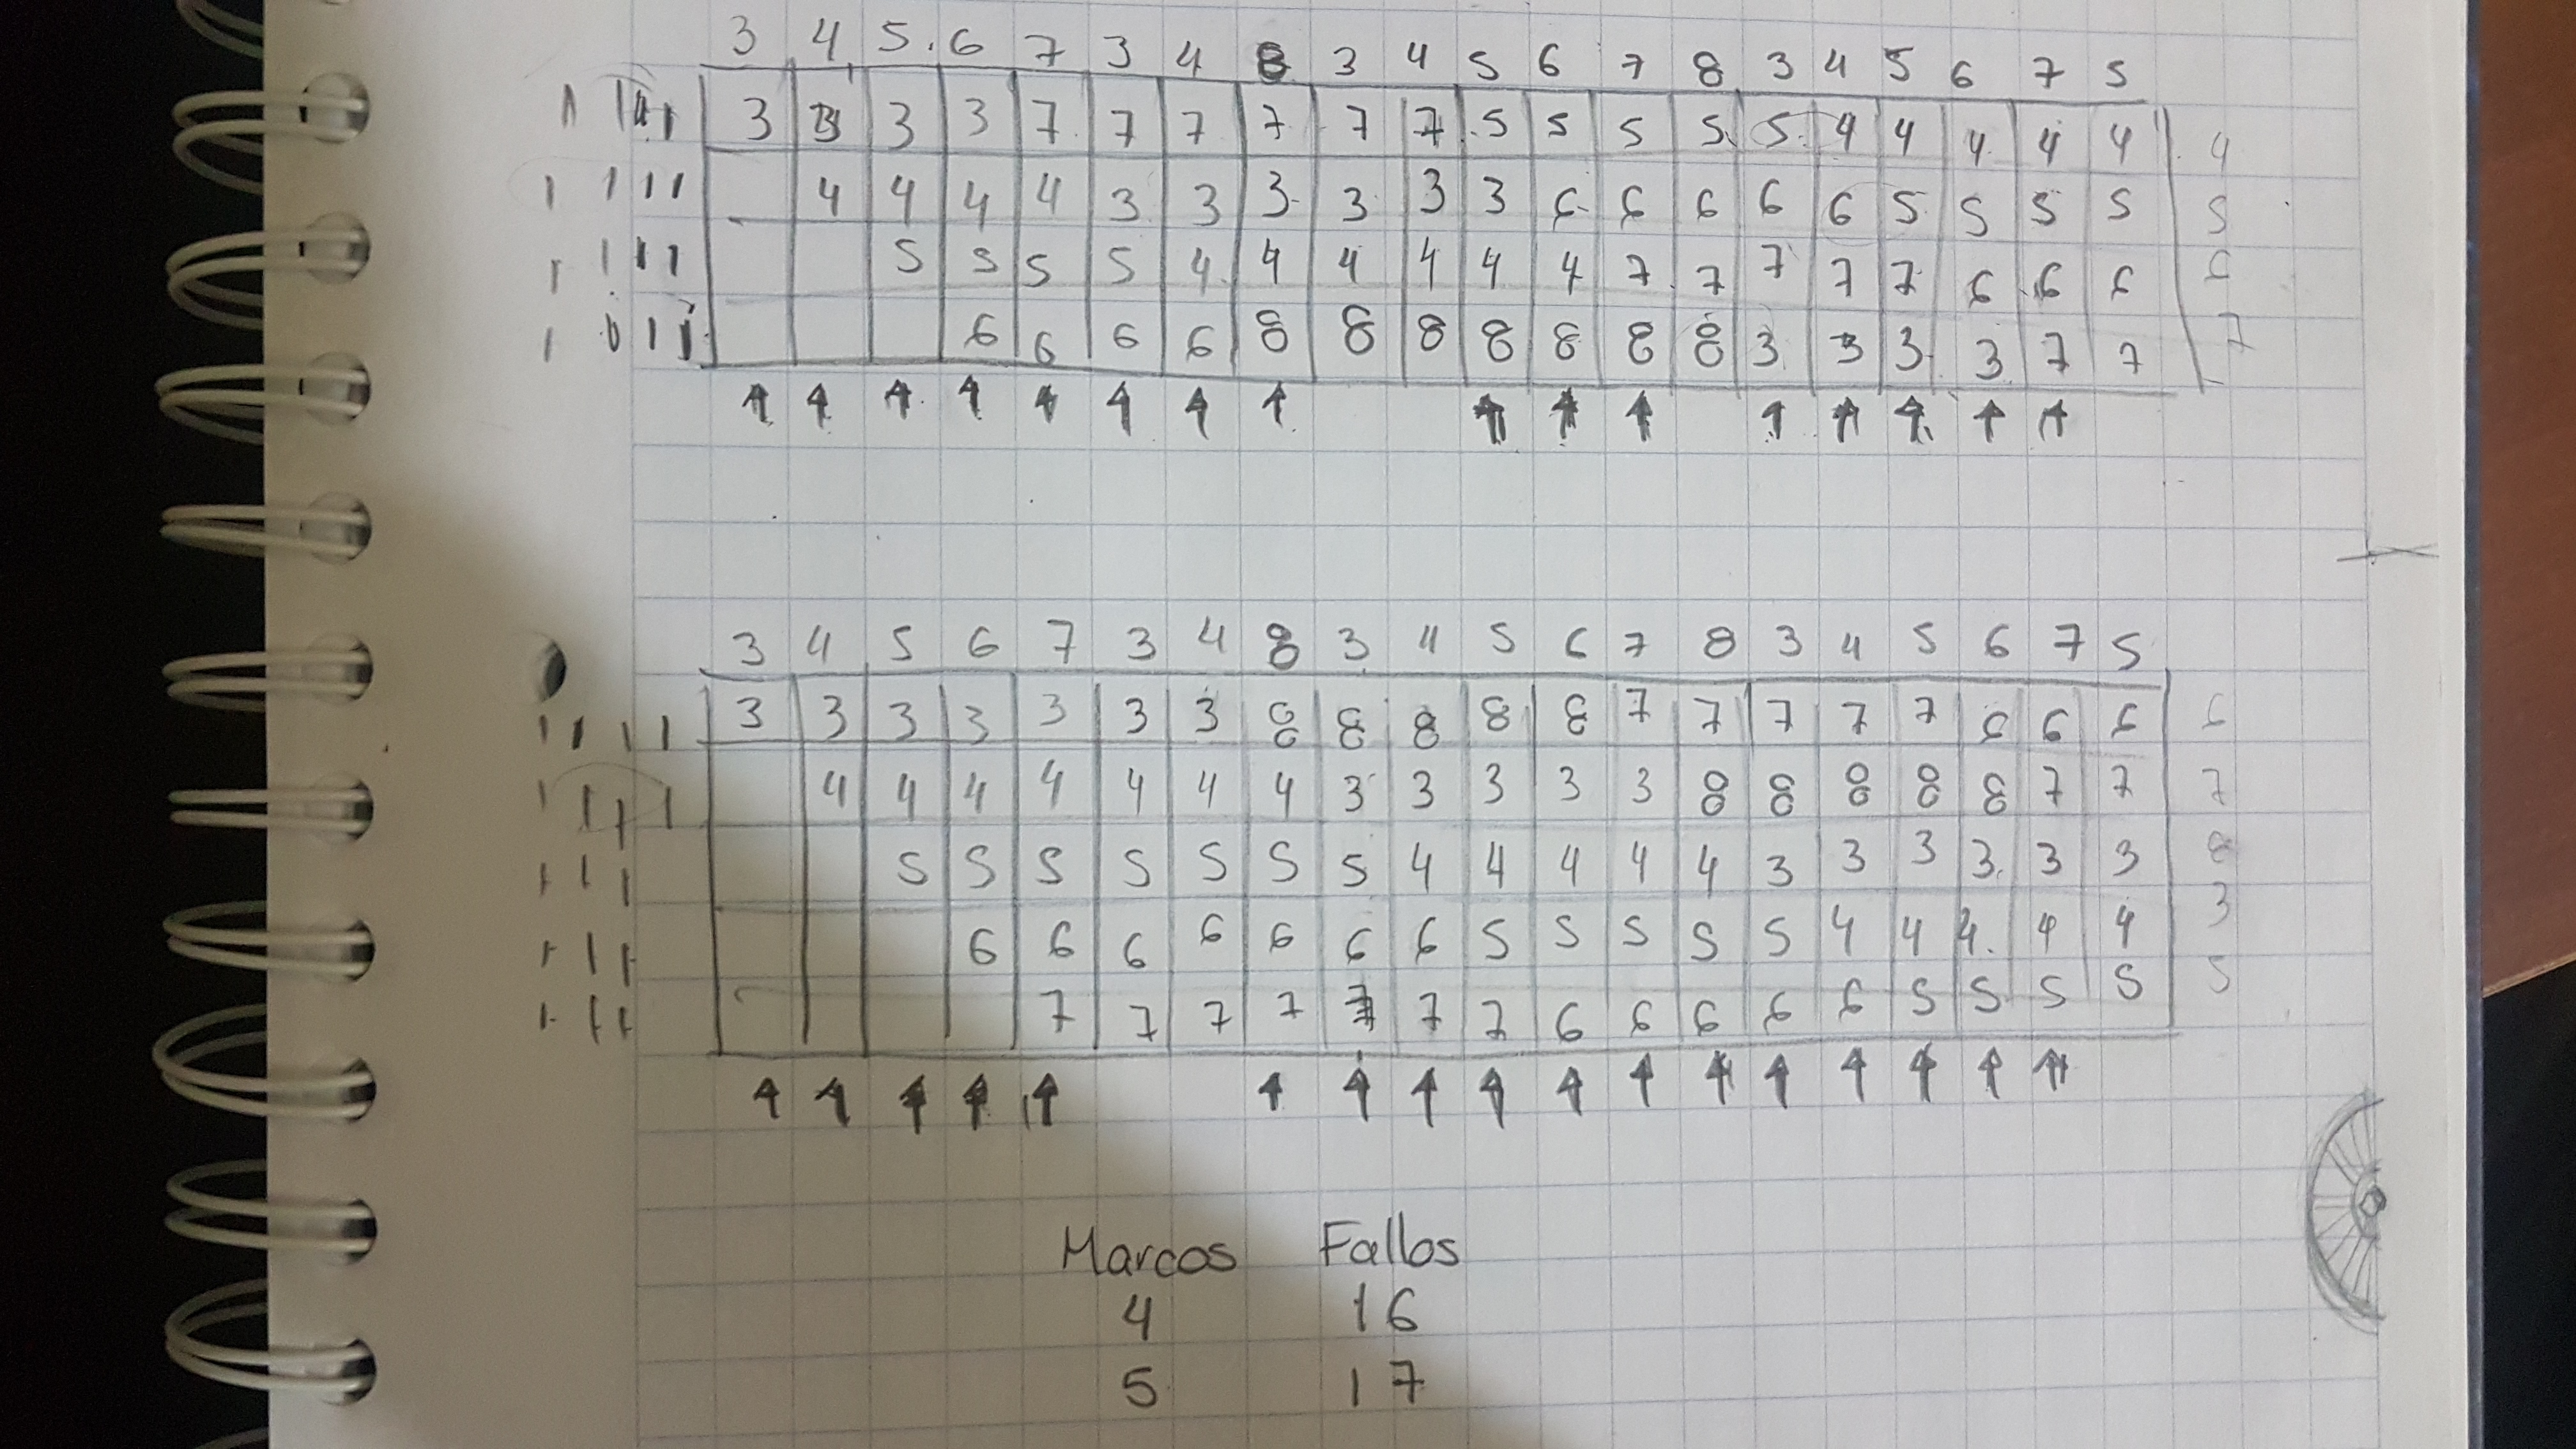 3 4 5 6 7 3 4 8 3 4 5 6 7 8 3 4 5 6 7 5
3 3 3 3 7 7 7 7 7 7 5 5 5 5 5 4 4 4 4 4 4
4 4 4 4 3 3 3 3 3 3 6 6 6 6 6 5 5 5 5 5
5 5 5 5 4 4 4 4 4 4 7 7 7 7 7 6 6 6 6
6 6 6 6 8 8 8 8 8 8 8 3 3 3 3 7 7 7
3 4 5 6 7 3 4 8 3 4 5 6 7 8 3 4 5 6 7 5
3 3 3 3 3 3 3 8 8 8 8 8 7 7 7 7 7 6 6 6 6
4 4 4 4 4 4 4 3 3 3 3 3 8 8 8 8 8 7 7 7
5 5 5 5 5 5 5 4 4 4 4 4 3 3 3 3 3 3
6 6 6 6 6 6 6 5 5 5 5 5 4 4 4 4 4 3
7 7 7 7 7 7 7 6 6 6 6 6 5 5 5 5 5
Marcos Fallos
4 16
5 17